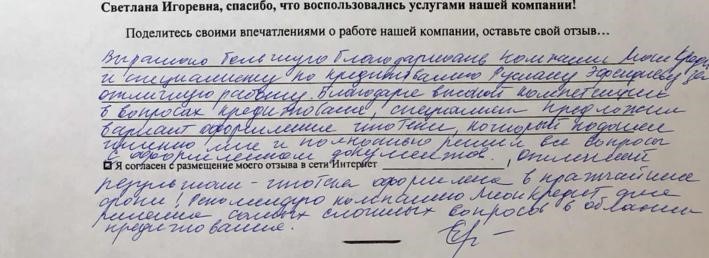 Светлана Игоревна, спасибо, что воспользовались услугами нашей компании!
Поделитесь своими впечатлениями о работе нашей компании, оставьте свой отзыв…
Выражаю большую благодарность компании
и специалисту по кредитованию Руслану за
отличную работу. Благодаря высокой компетенции
в вопросах кредитования, специалист предложил
вариант оформления ипотеки, который подошел
именно мне и полностью решил все вопросы
с оформлением документов.
Я согласен с размещение моего отзыва в сети Интернет , отличный
результат - ипотека оформлена в кратчайшие
сроки! Рекомендую компанию для
решения самых сложных вопросов в области
кредитования.